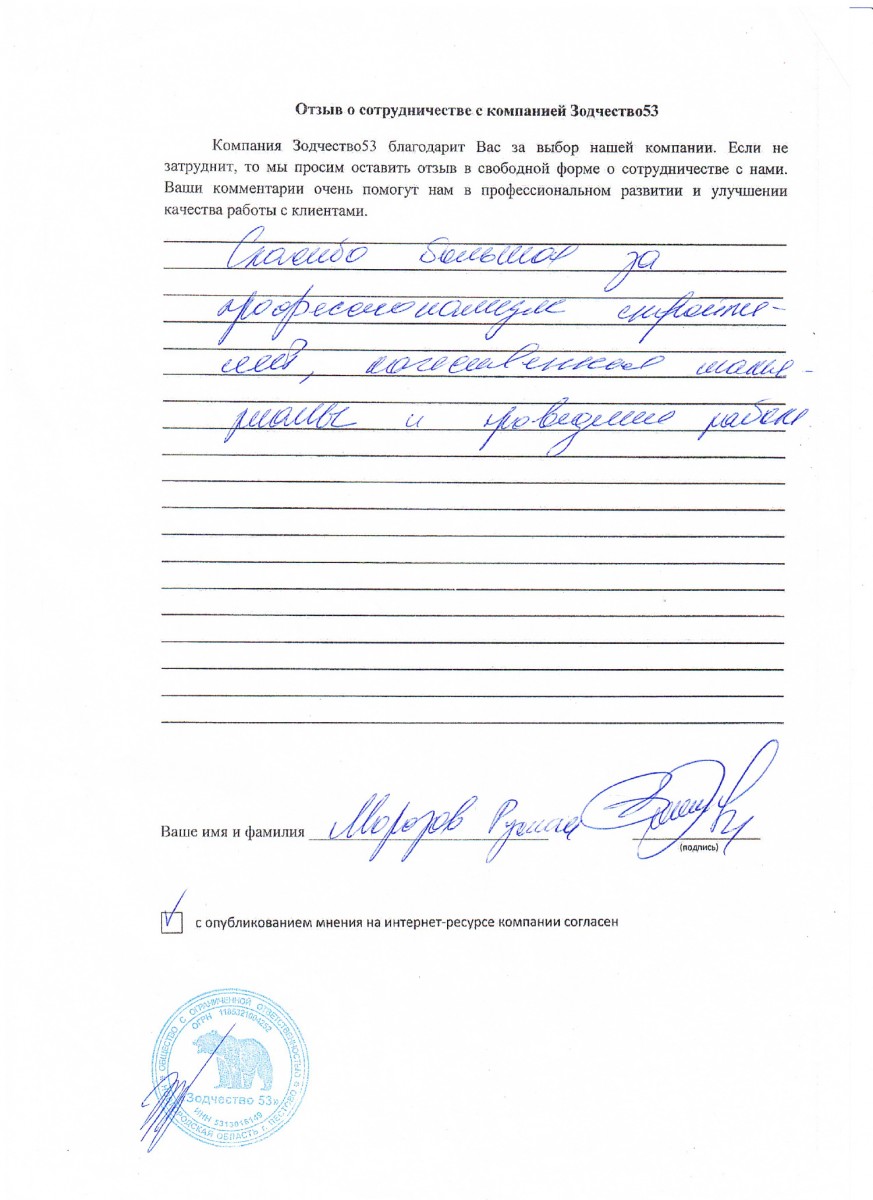 Отзыв о сотрудничестве с компанией Зодчество53
Компания Зодчество53 благодарит Вас за выбор нашей компании. Если не
затруднит, то мы просим оставить отзыв в свободной форме о сотрудничестве с нами.
Ваши комментарии очень помогут нам в профессиональном развитии и улучшении
качества работы с клиентами.
Спасибо большое за
профессионализм строите-
лей, качественные мате-
риалы и проведение работ
Ваше имя и фамилия Морозов Руслан
(подпись)
с опубликованием мнения на интернет-ресурсе компании согласен
ОБЩЕСТВО С ОГРАНИЧЕННОЙ ОТВЕТСТВЕННОСТЬЮ
ОГРН
Зодчество 53»
ИНН
ОБЛАСТЬ г. ПЕСТОВО